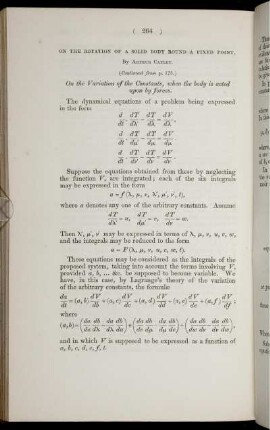 ( 264 )
ON THE ROTATION OF A SOLID BODY ROUND A FIXED POINT.
By Arthur Cayley.
(Continued from p. 173.)
On the Variation of the Constants, when the body is acted
upon by forces.
The dynamical equations of a problem being expressed
in the form
d/dt dT/dλ' - dT/dλ = dV/dλ,
d/dt dT/dμ' - dT/dμ = dV/dμ,
d/dt dT/dν' - dT/dν = dV/dν.
Suppose the equations obtained from these by neglecting
the function V, are integrated; each of the six integrals
may be expressed in the form
a = f(λ, μ, ν, λ', μ', ν', t),
where a denotes any one of the arbitrary constants. Assume
dT/dλ' = u, dT/dμ' = v, dT/dν' = w.
Then λ', μ', ν' may be expressed in terms of λ, μ, ν, u, v, w,
and the integrals may be reduced to the form
a = F(λ, μ, ν, u, v, w, t).
These equations may be considered as the integrals of the
proposed system, taking into account the terms involving V,
provided a, b, ... &c. be supposed to become variable. We
have, in this case, by Lagrange's theory of the variation
of the arbitrary constants, the formulæ
da/dt = (a, b) dV/db + (a, c) dV/dc + (a, d) dV/dd + (a, e) dV/de + (a, f) dV/df,
where
and in which V is supposed to be expressed as a function of
a, b, c, d, e, f, t.